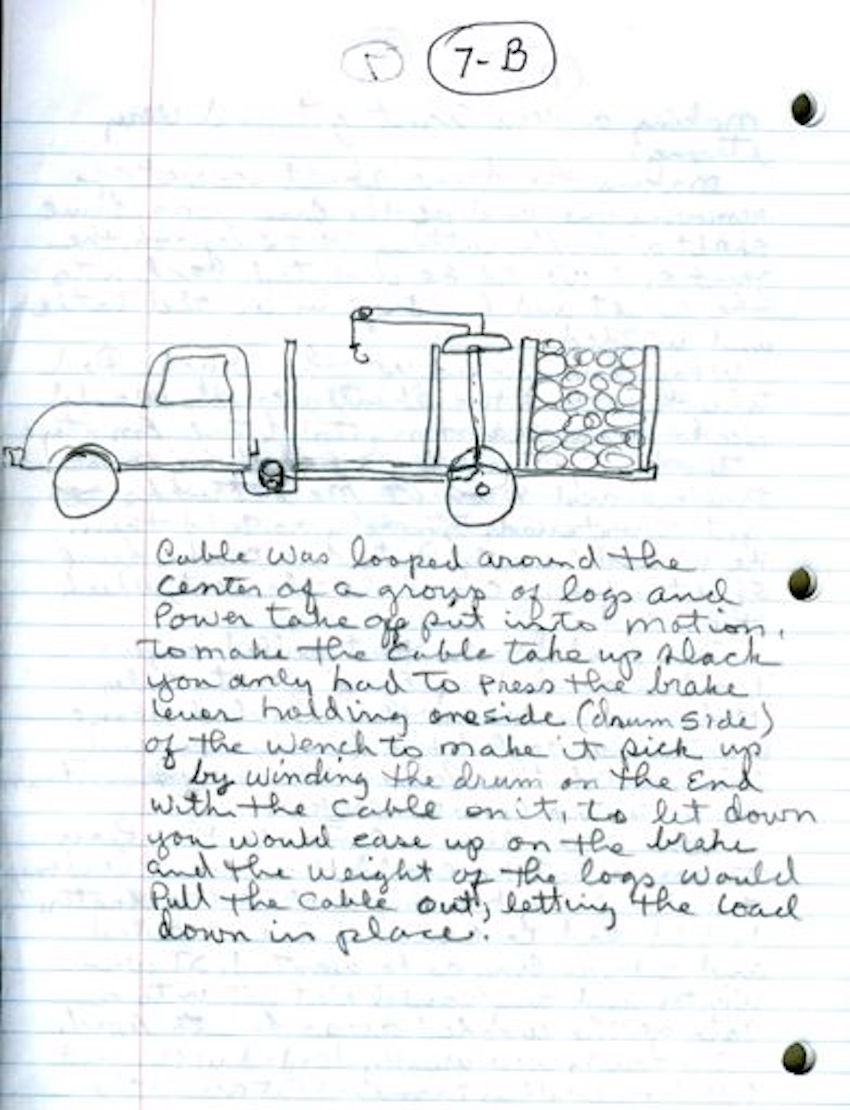 7 7-B
Cable was looped around the
center of a group of logs and
Power take off put into motion,
to make the cable take up slack
you only had to press the brake
lever holding oneside (drum side)
of the wench to make it pick up
by winding the drum on the end
with the cable on it, to let down
you would ease up on the brake
and the weight of the logs would
Pull the cable out, letting the load
down in place.